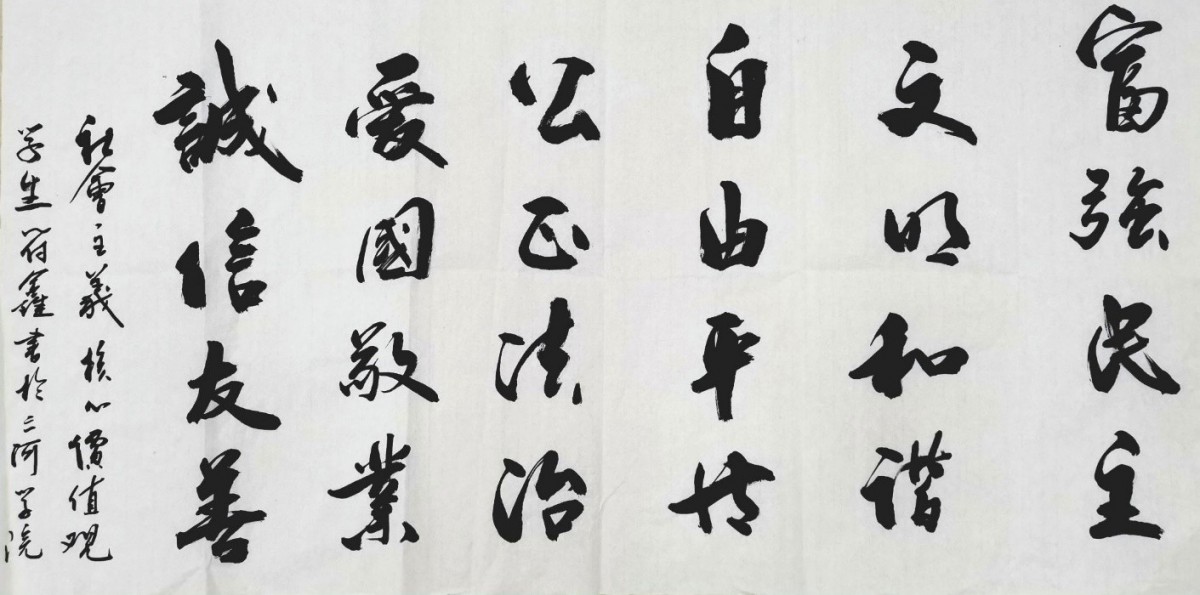 富強民主
文明和谐
自由平等
公正法治
愛國敬業
誠信友善
社會主義核心價值观
学生符鑫書於三河学院